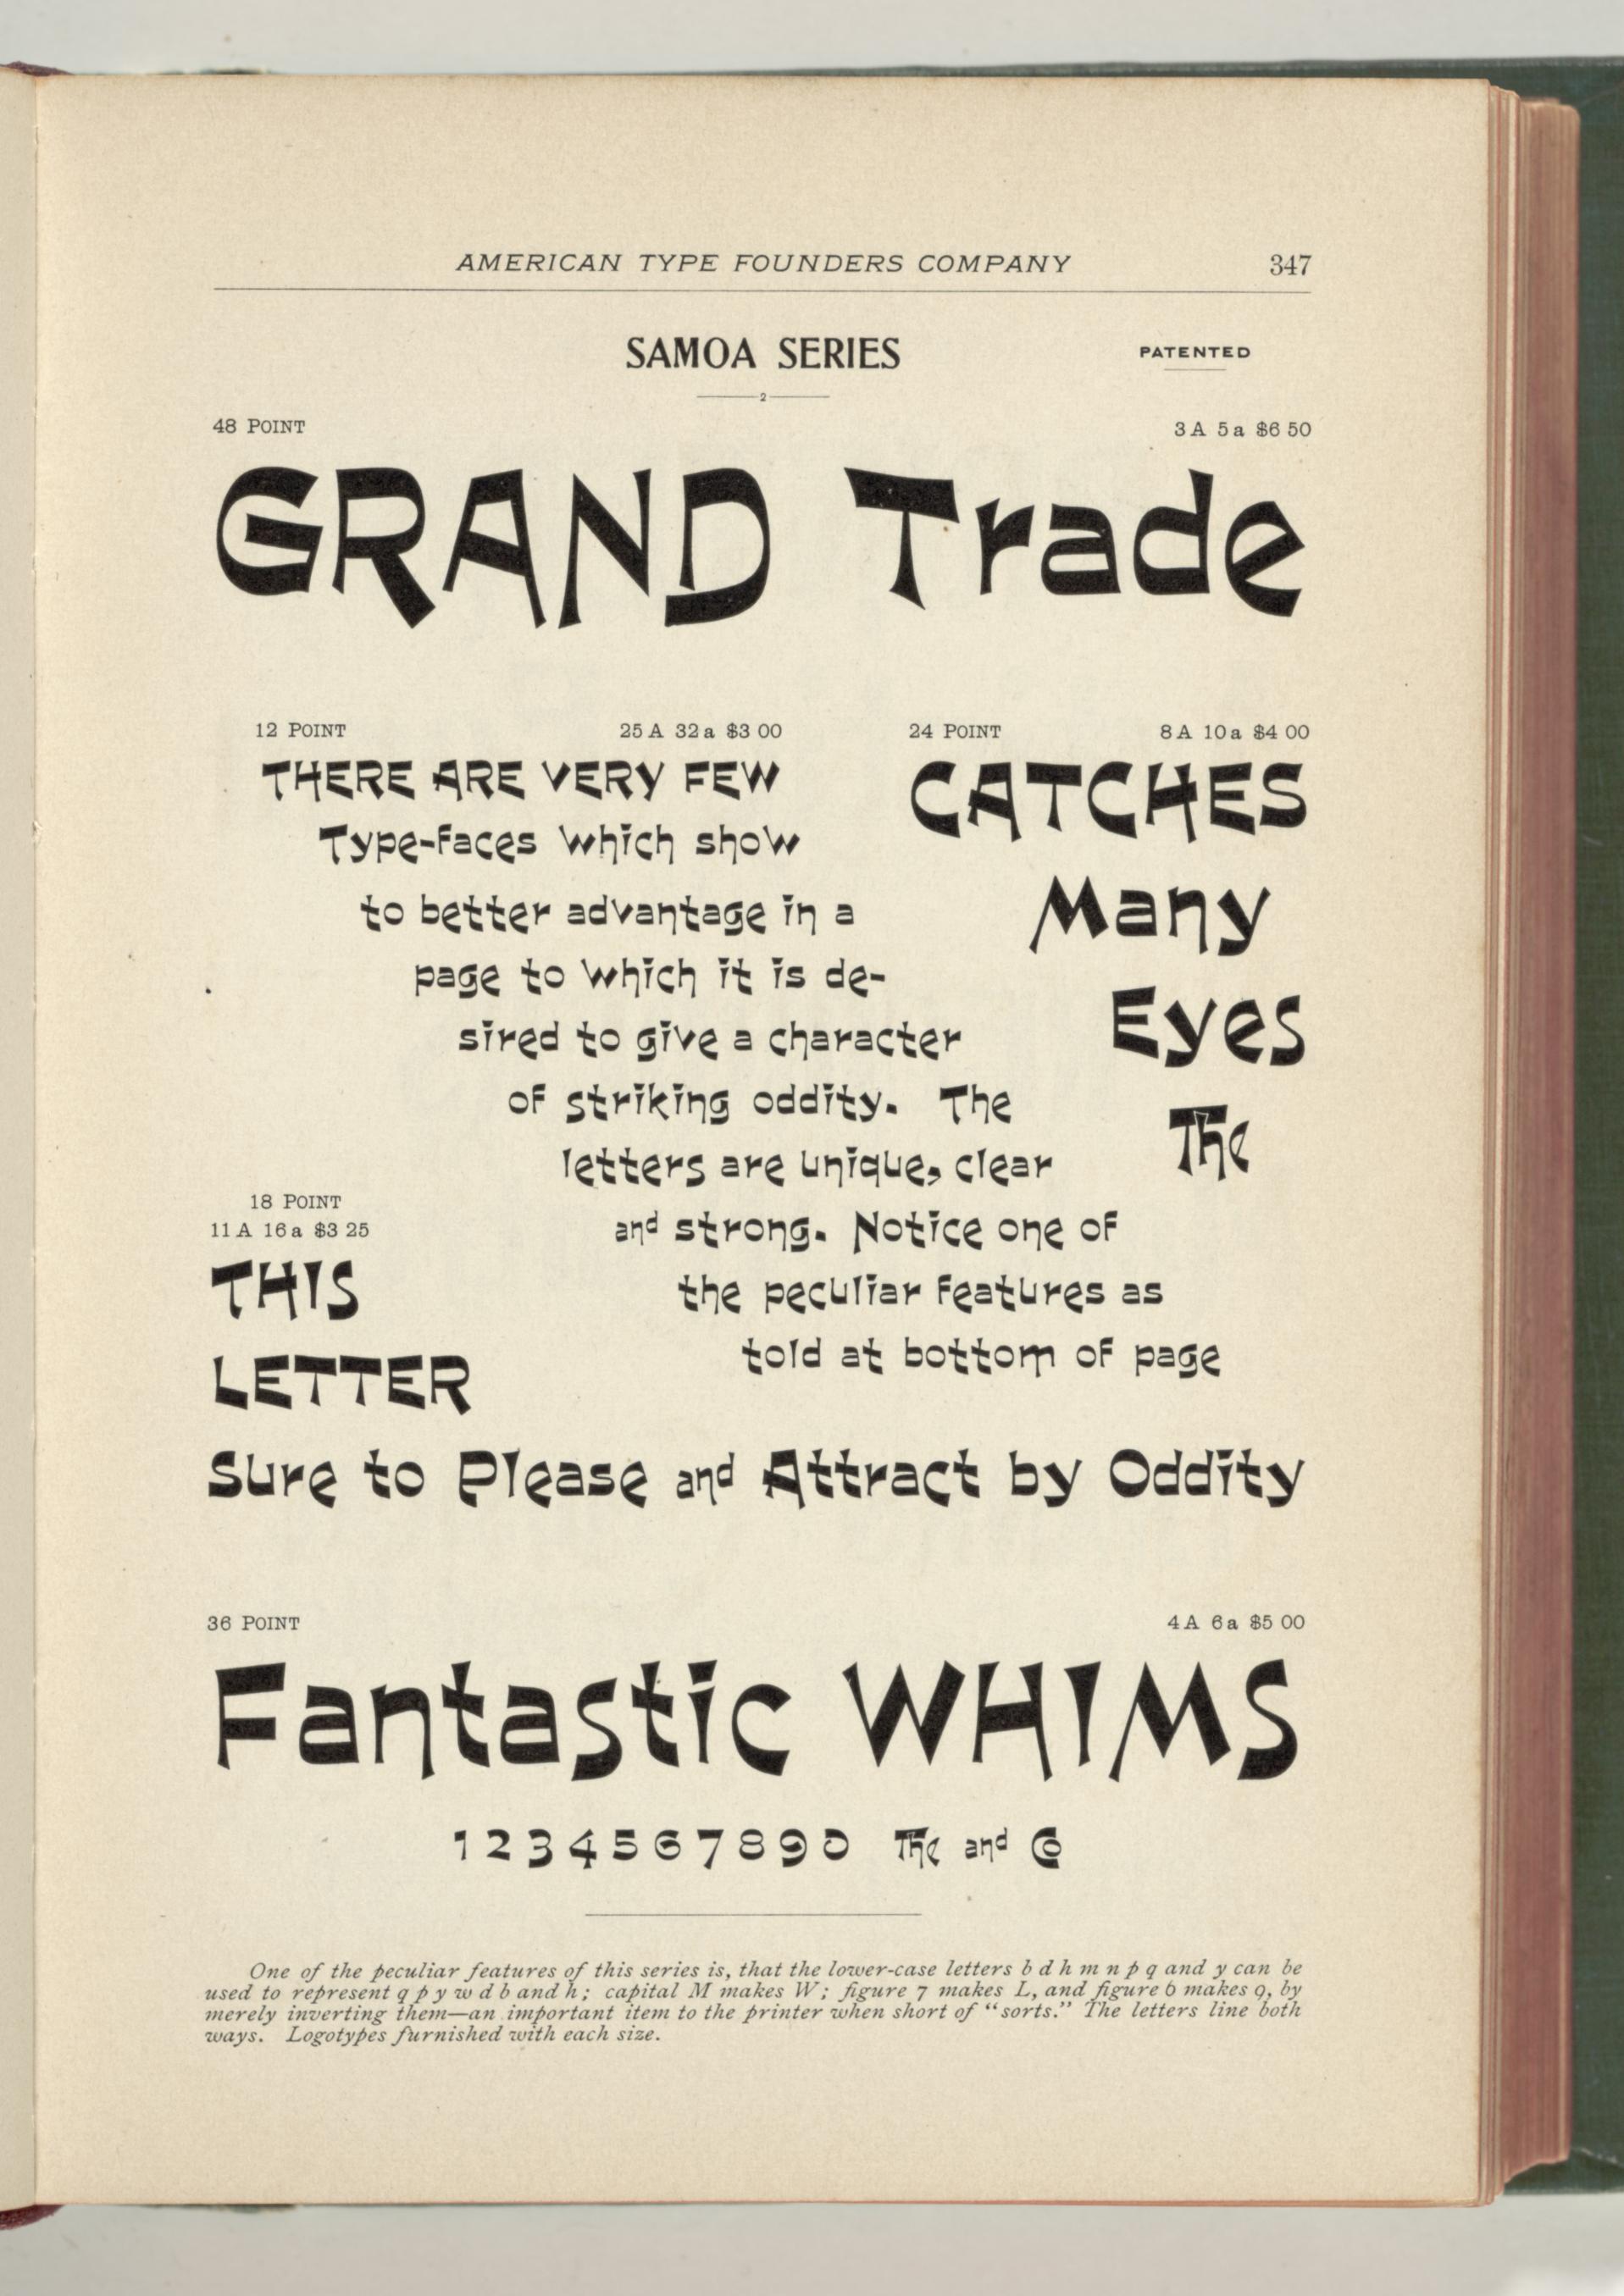 AMERICAN TYPE FOUNDERS COMPANY 347
SAMOA SERIES
PATENTED
2
48 POINT 3 A 5 a $6 50
GRAND Trade
12 POINT 25 A 32 a $3 00
THERE ARE VERY FEW
Type-faces which show
to better advantage in a
page to which it is de-
sired to give a character
of striking oddity. The
letters are unique, clear
and strong. Notice one of
the peculiar features as
told at bottom of page
24 POINT 8 A 10 a $4 00
CATCHES
Many
Eyes
The
18 POINT
11 A 16 a $3 25
THIS
LETTER
Sure to Please and Attract by Oddity
36 POINT 4 A 6 a $5 00
Fantastic WHIMS
1 2 3 4 5 6 7 8 9 0 The and Co
One of the peculiar features of this series is, that the lower-case letters b d h m n p q and y can be
used to represent q p y w d b and h; capital M makes W; figure 7 makes L, and figure 6 makes 9, by
merely inverting them—an important item to the printer when short of “sorts.” The letters line both
ways. Logotypes furnished with each size.